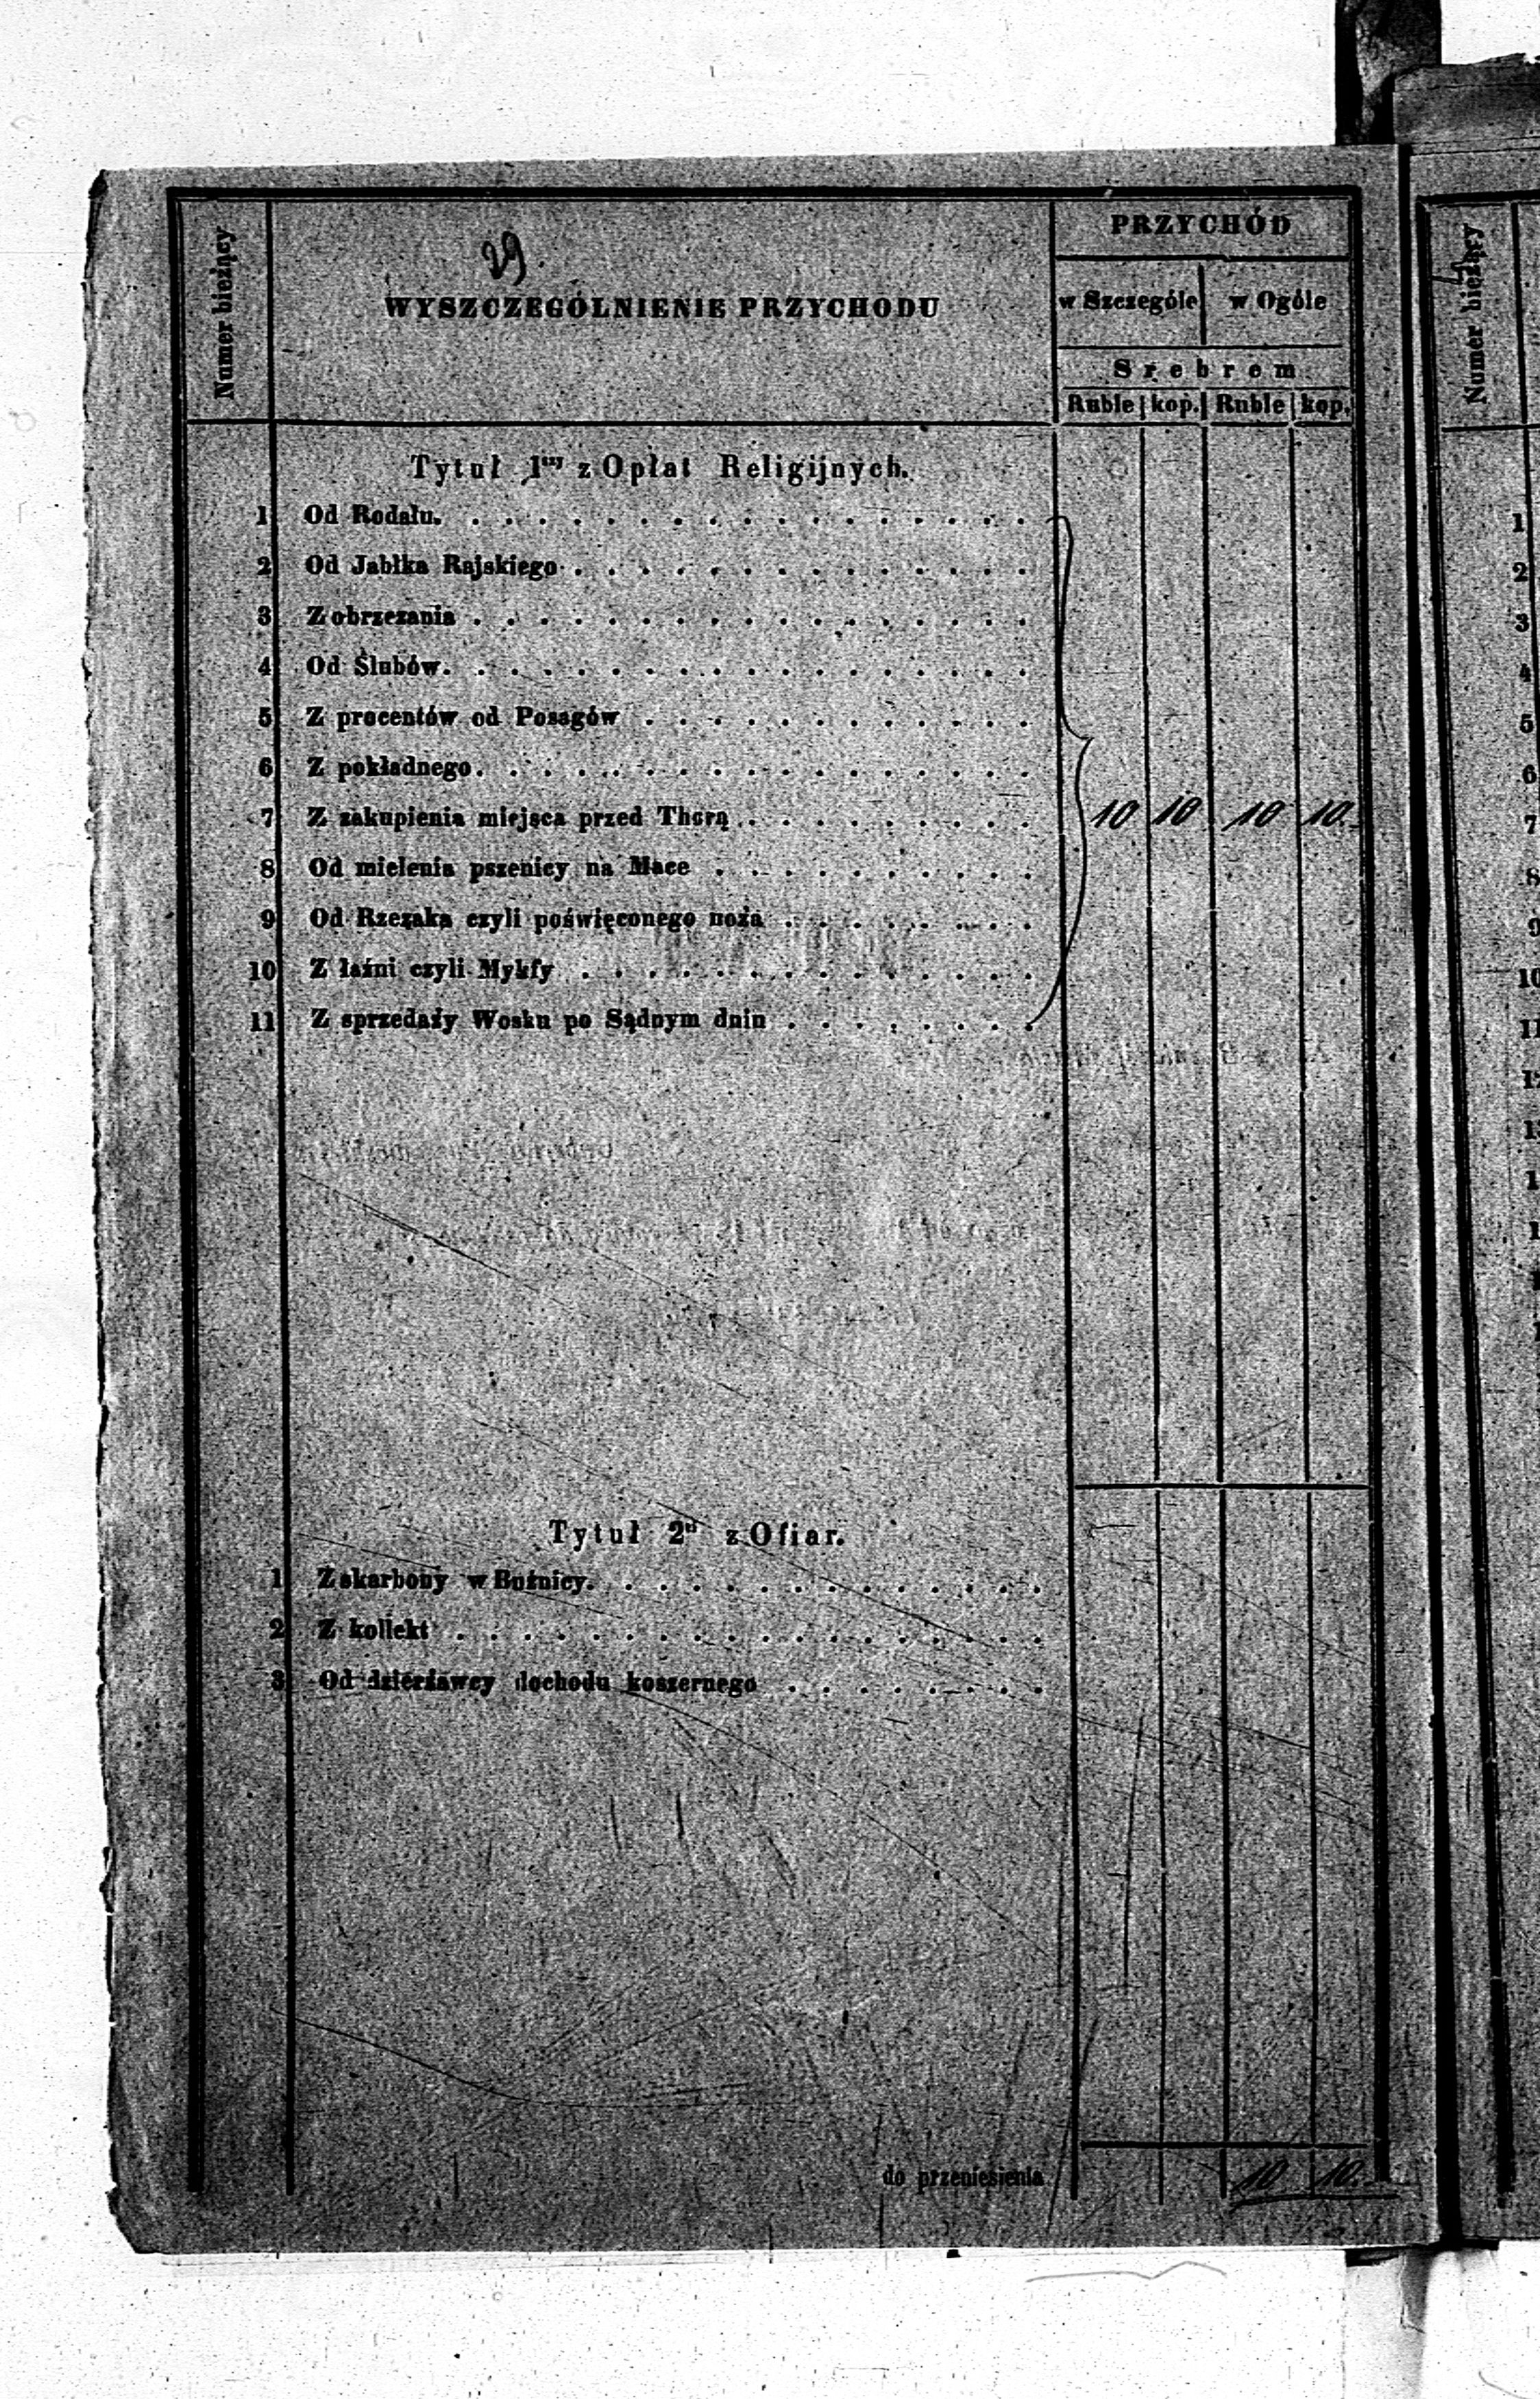 29.
Numer bieżący
WYSZCZEGÓLNIENIE PRZYCHODU
PRZYCHÓD
w Szczególe w Ogóle
Srebrem
Ruble kop. Ruble kop.
Tytuł 1szy z Opłat Religijnych.
1 Od Rodału.
2 Od Jabłka Rajskiego
3 Z obrzezania
4 Od Ślubów.
5 Z procentów od Posagów
6 Z pokładnego.
7 Z zakupienia miejsca przed Thorą 10 10 10 10
8 Od mielenia pszenicy na Mace
9 Od Rzezaka czyli poświęconego noża
10 Z łaźni czyli Mykfy
11 Z sprzedaży Wosku po Sądnym dniu
Tytuł 2gi z Ofiar.
1 Z skarbony w Bużnicy.
2 Z kollekt
3 Od dzierżawcy dochodu koszernego
do przeniesienia 10 10
Numer bieżący
1
2
3
4
5
6
7
8
9
10
11